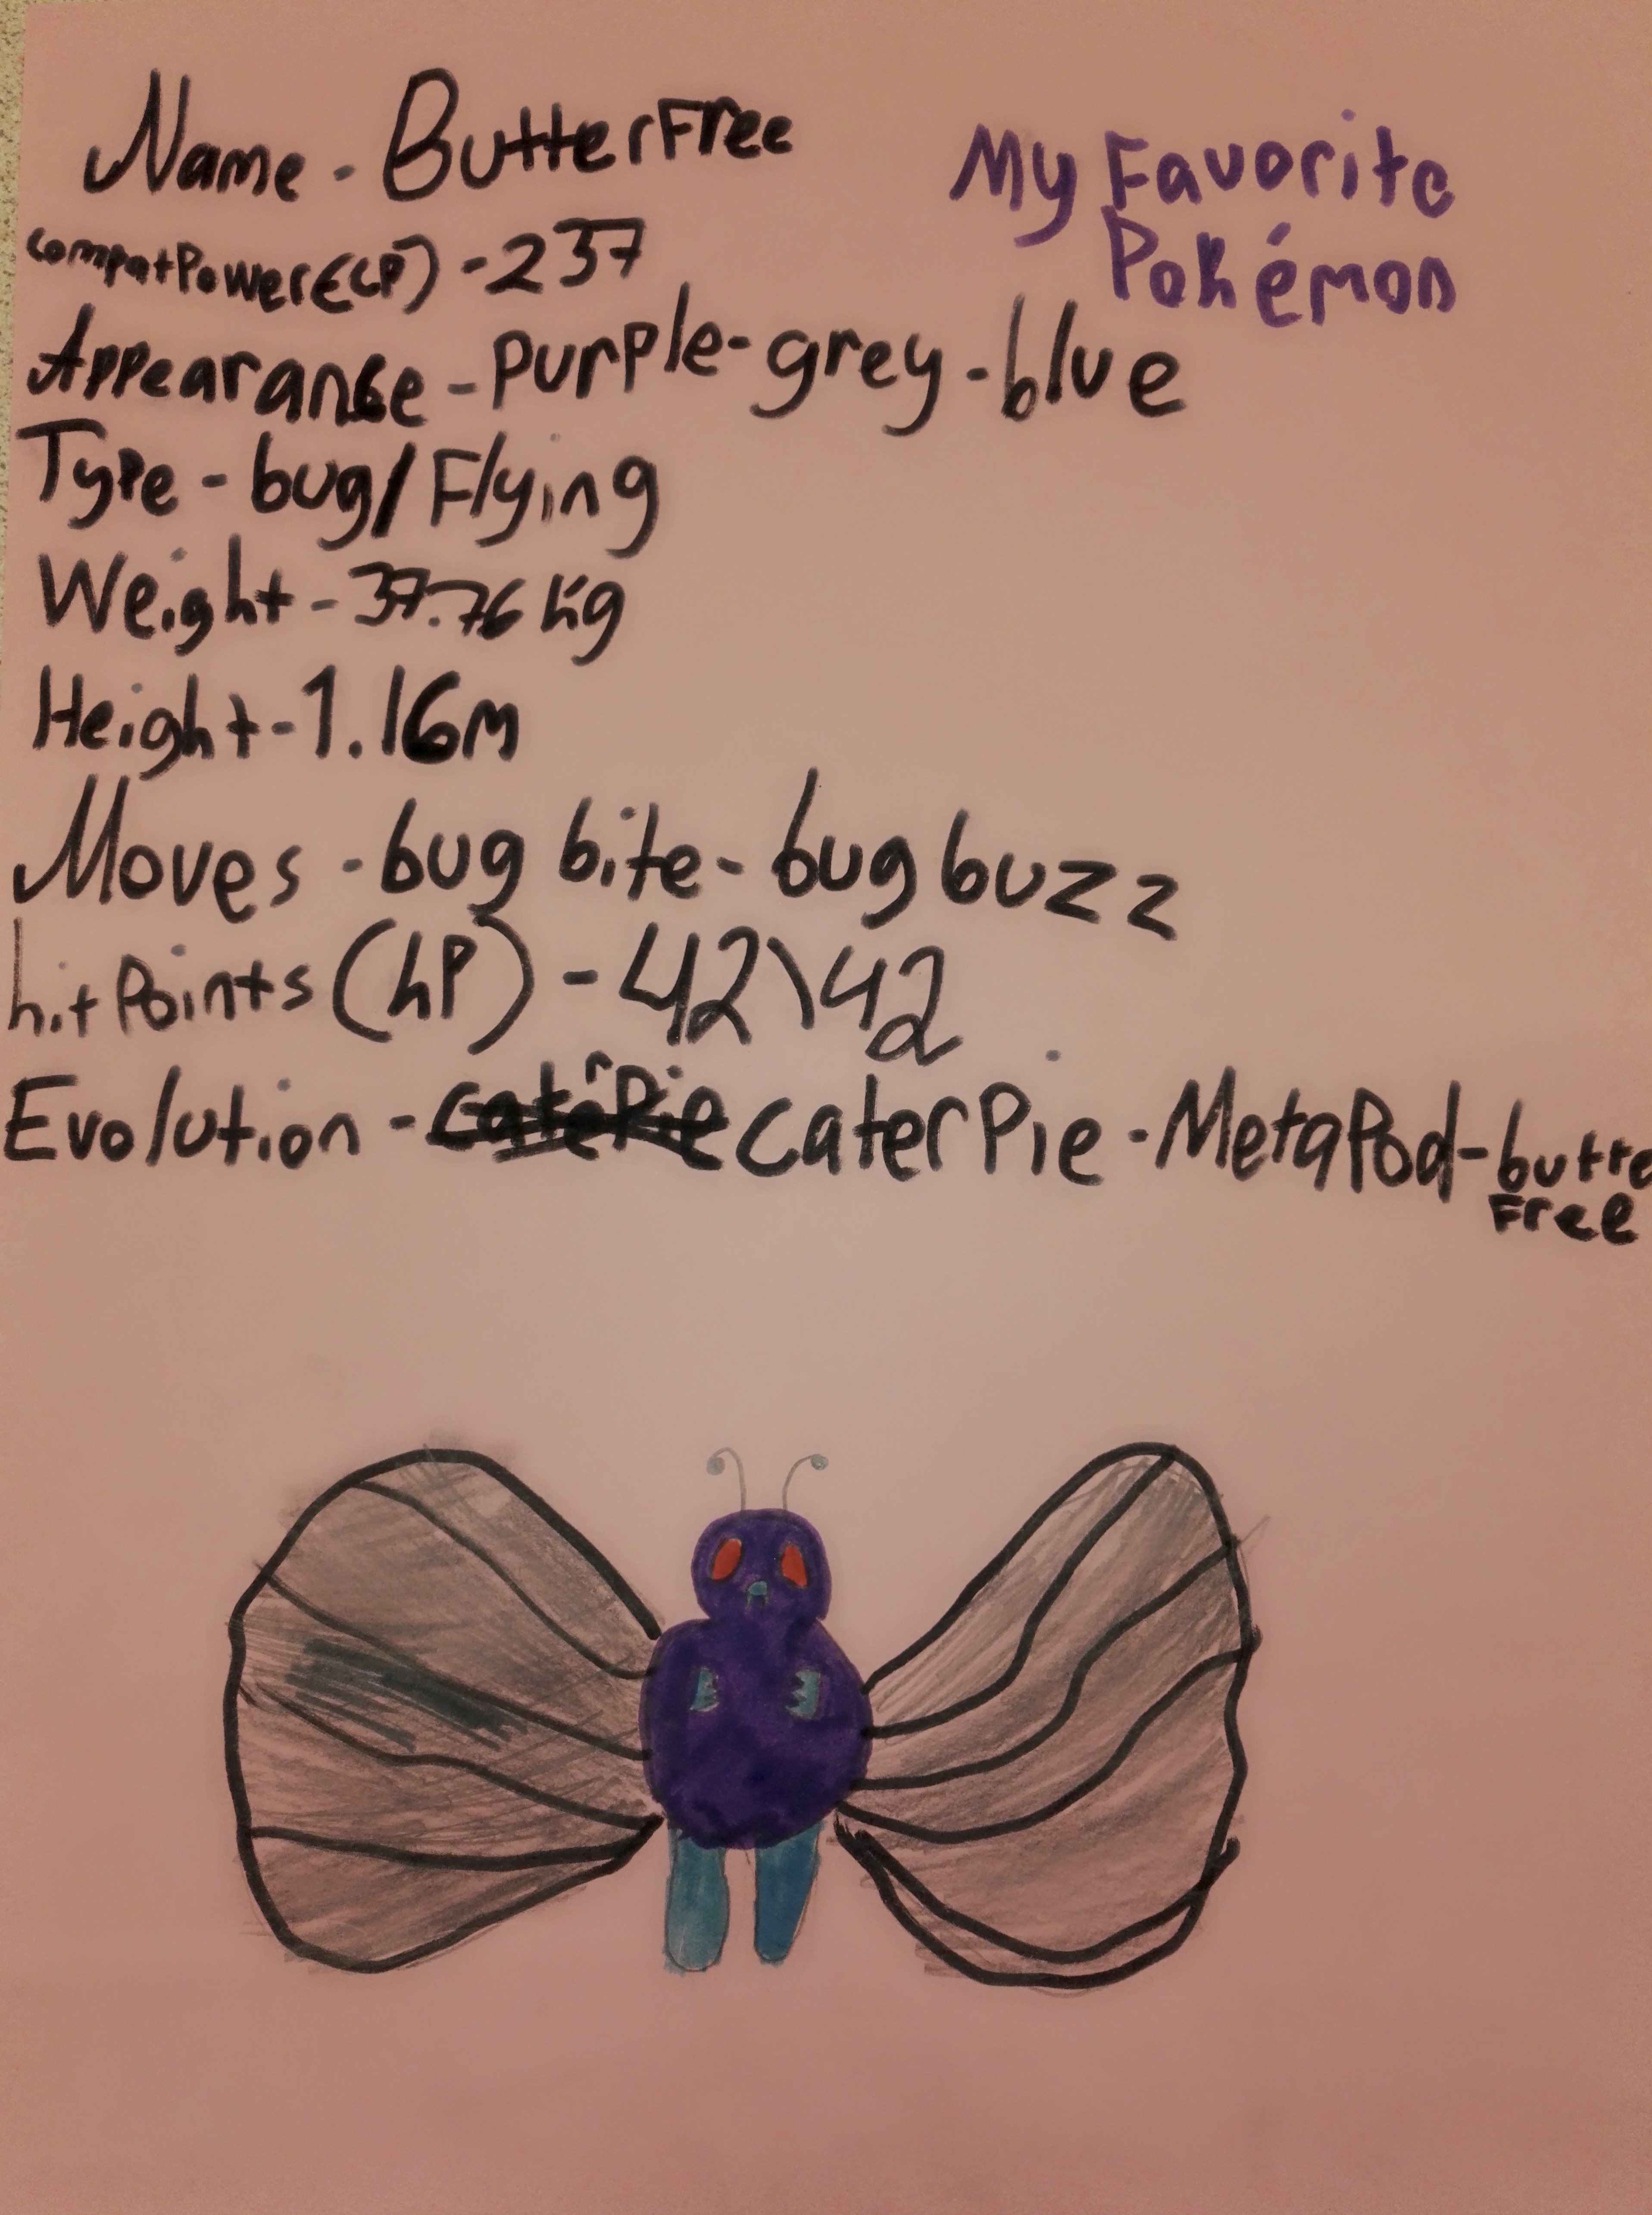 Name - ButterFree
My Favorite
Pokémon
compatPower(CP) - 237
Appearance - purple-grey-blue
Type - bug/Flying
Weight - 37.76 kg
Height - 1.16m
Moves - bug bite - bug buzz
hit Points (hP) - 42\42
Evolution - Caterpie CaterPie - MetaPod - butter
Free